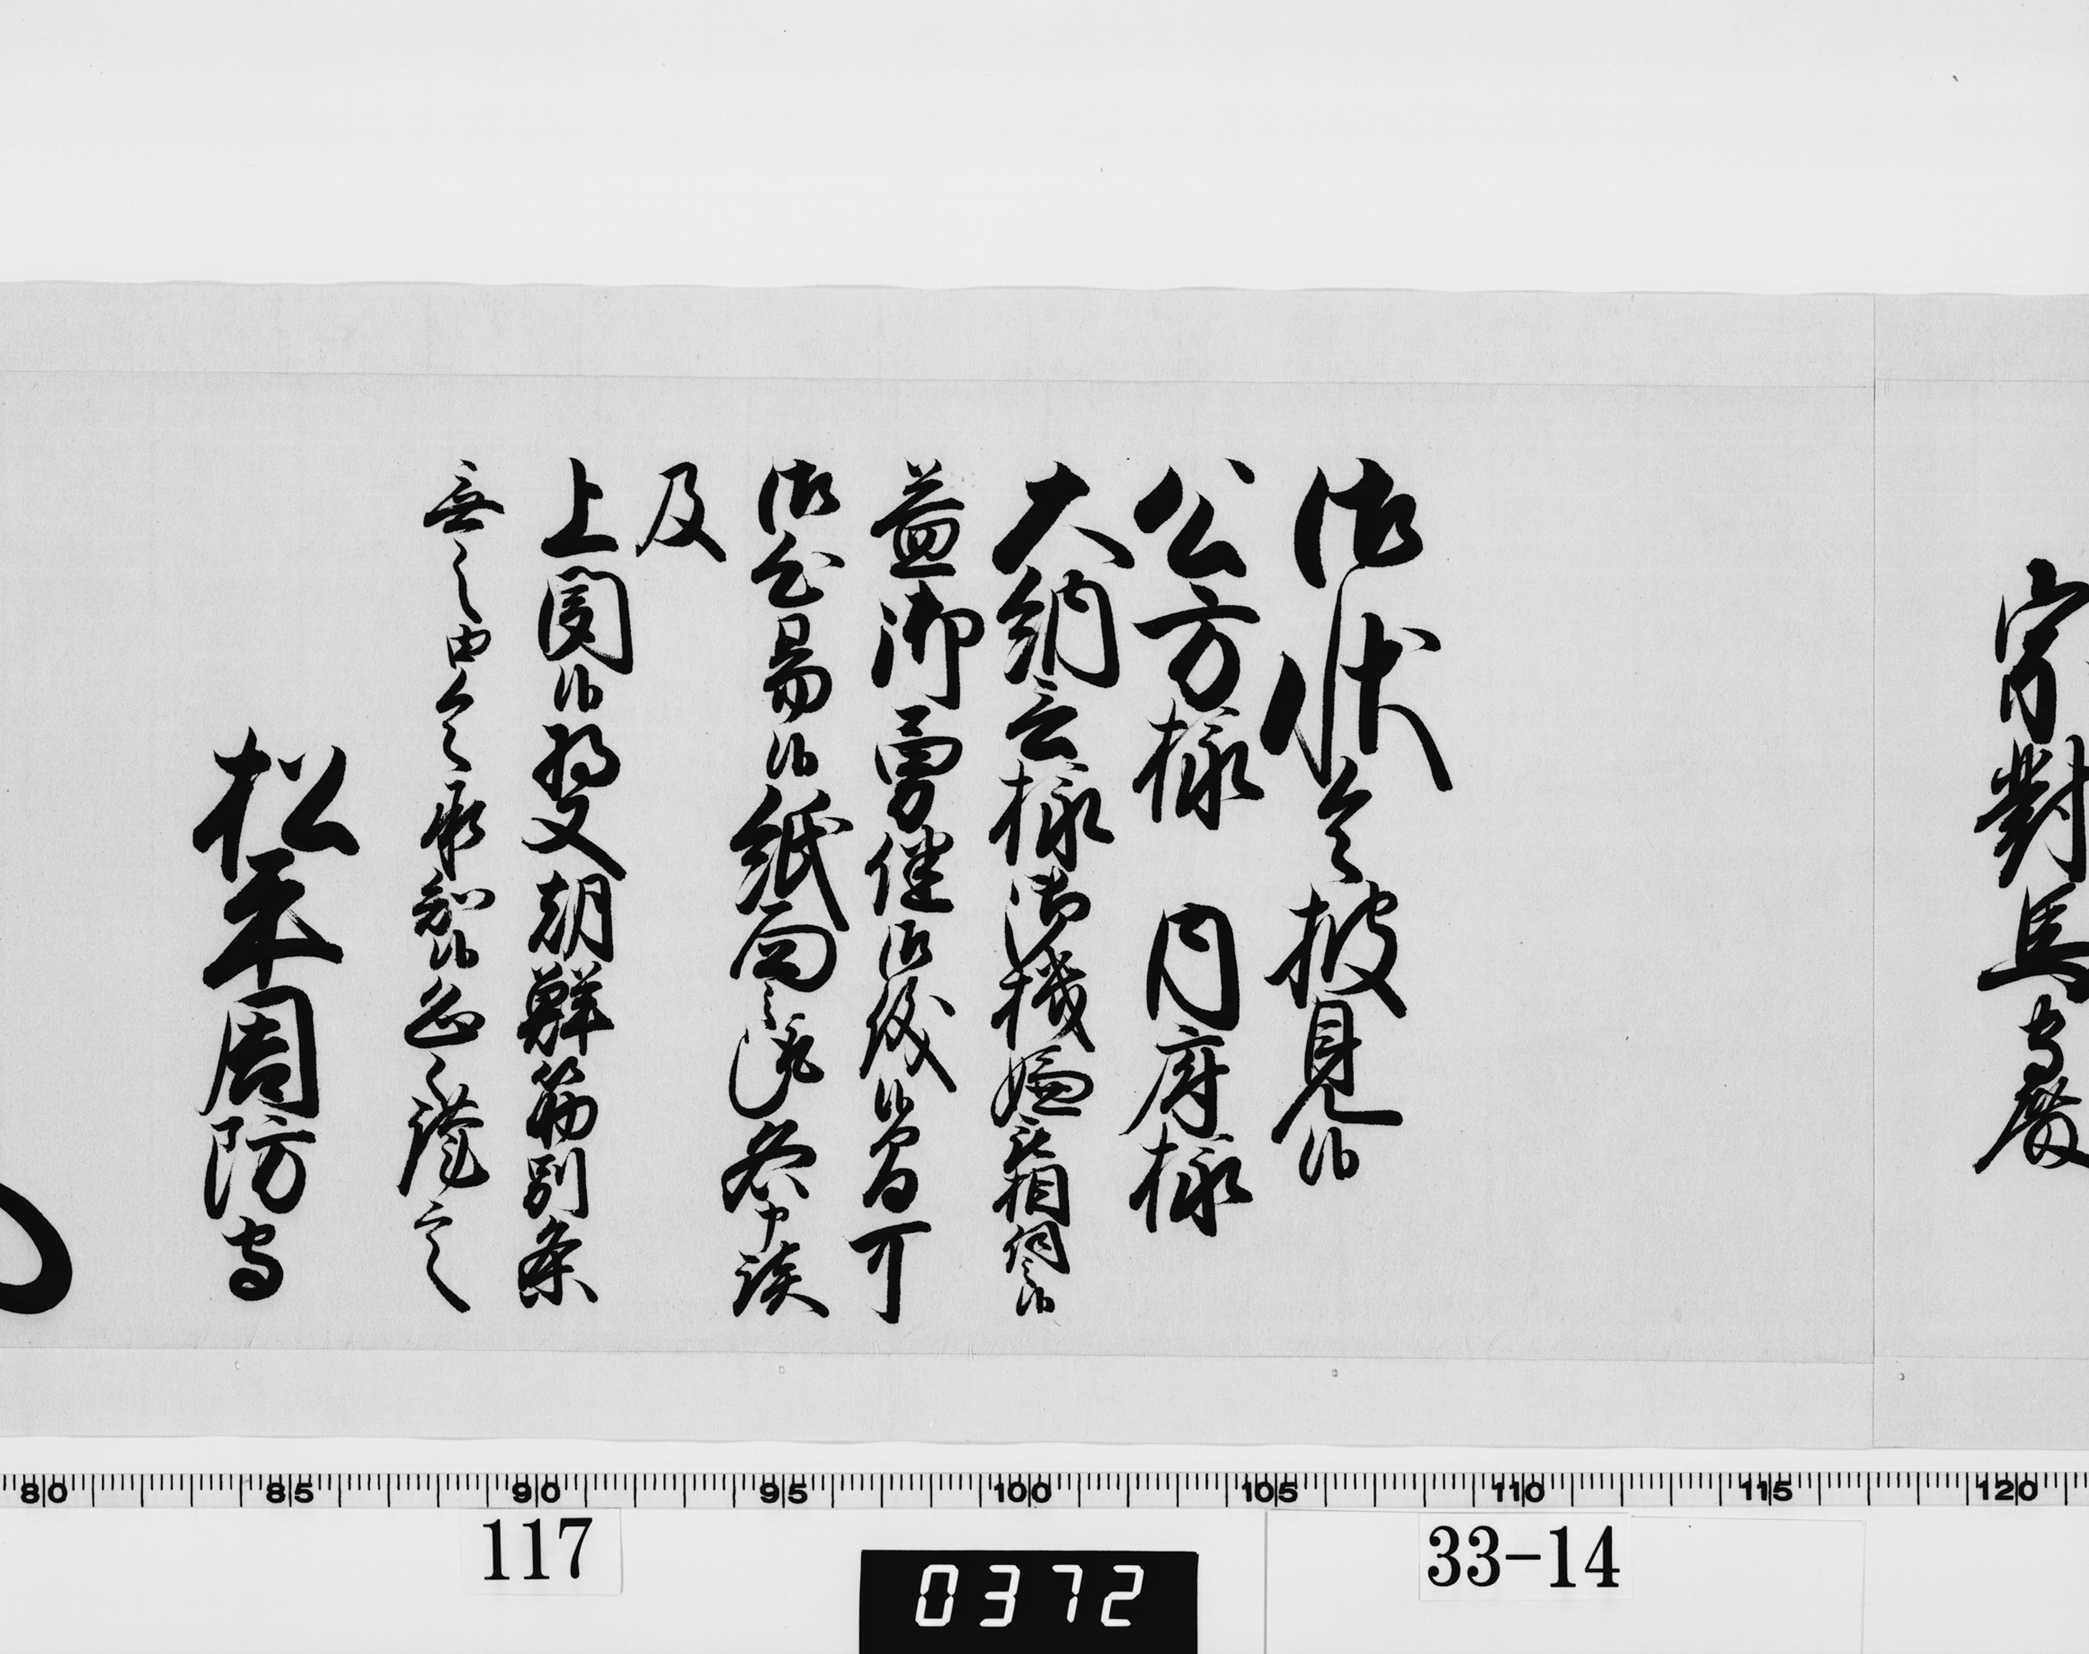 宗對馬守殿
御状令披見候
公方様　内府様
大納言様御機嫌被相伺之候
益御勇健御儀候間可
御心易候紙面之趣各申談
及
上聞候将又朝鮮筋別条
無之由令承知候恐々謹言
松平周防守
80 85 90 95 100 105 110 115 120
117
0372
33-14